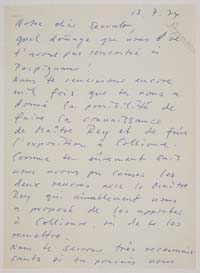 12.7.74
Notre cher Serrat
quel dommage que nous
n'avons pas rencontré à
Perpignan!
Nous te remercions encore
mil fois que tu nous a
donné la possibilité de
faire la connaissance
de Maître Rey et de finir
l'exposition à Collioure.
Comme tu sûrement sait
nous avons pu laisser les
deux œuvres avec le Maître
Rey qui aimablement nous
a proposé de les apporter
à Collioure, où de te les
remettre.
Nous te serons très reconnais-
sants si tu pouvais nous